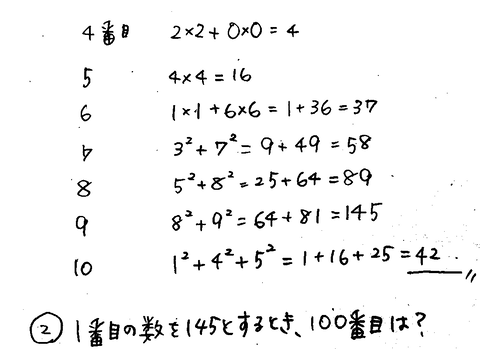 4番目 2×2+0×0=4
5 4×4=16
6 1×1+6×6=1+36=37
7 3²+7²=9+49=58
8 5²+8²=25+64=89
9 8²+9²=64+81=145
10 1²+4²+5²=1+16+25=42
② 1番目の数を145とするとき、100番目は?